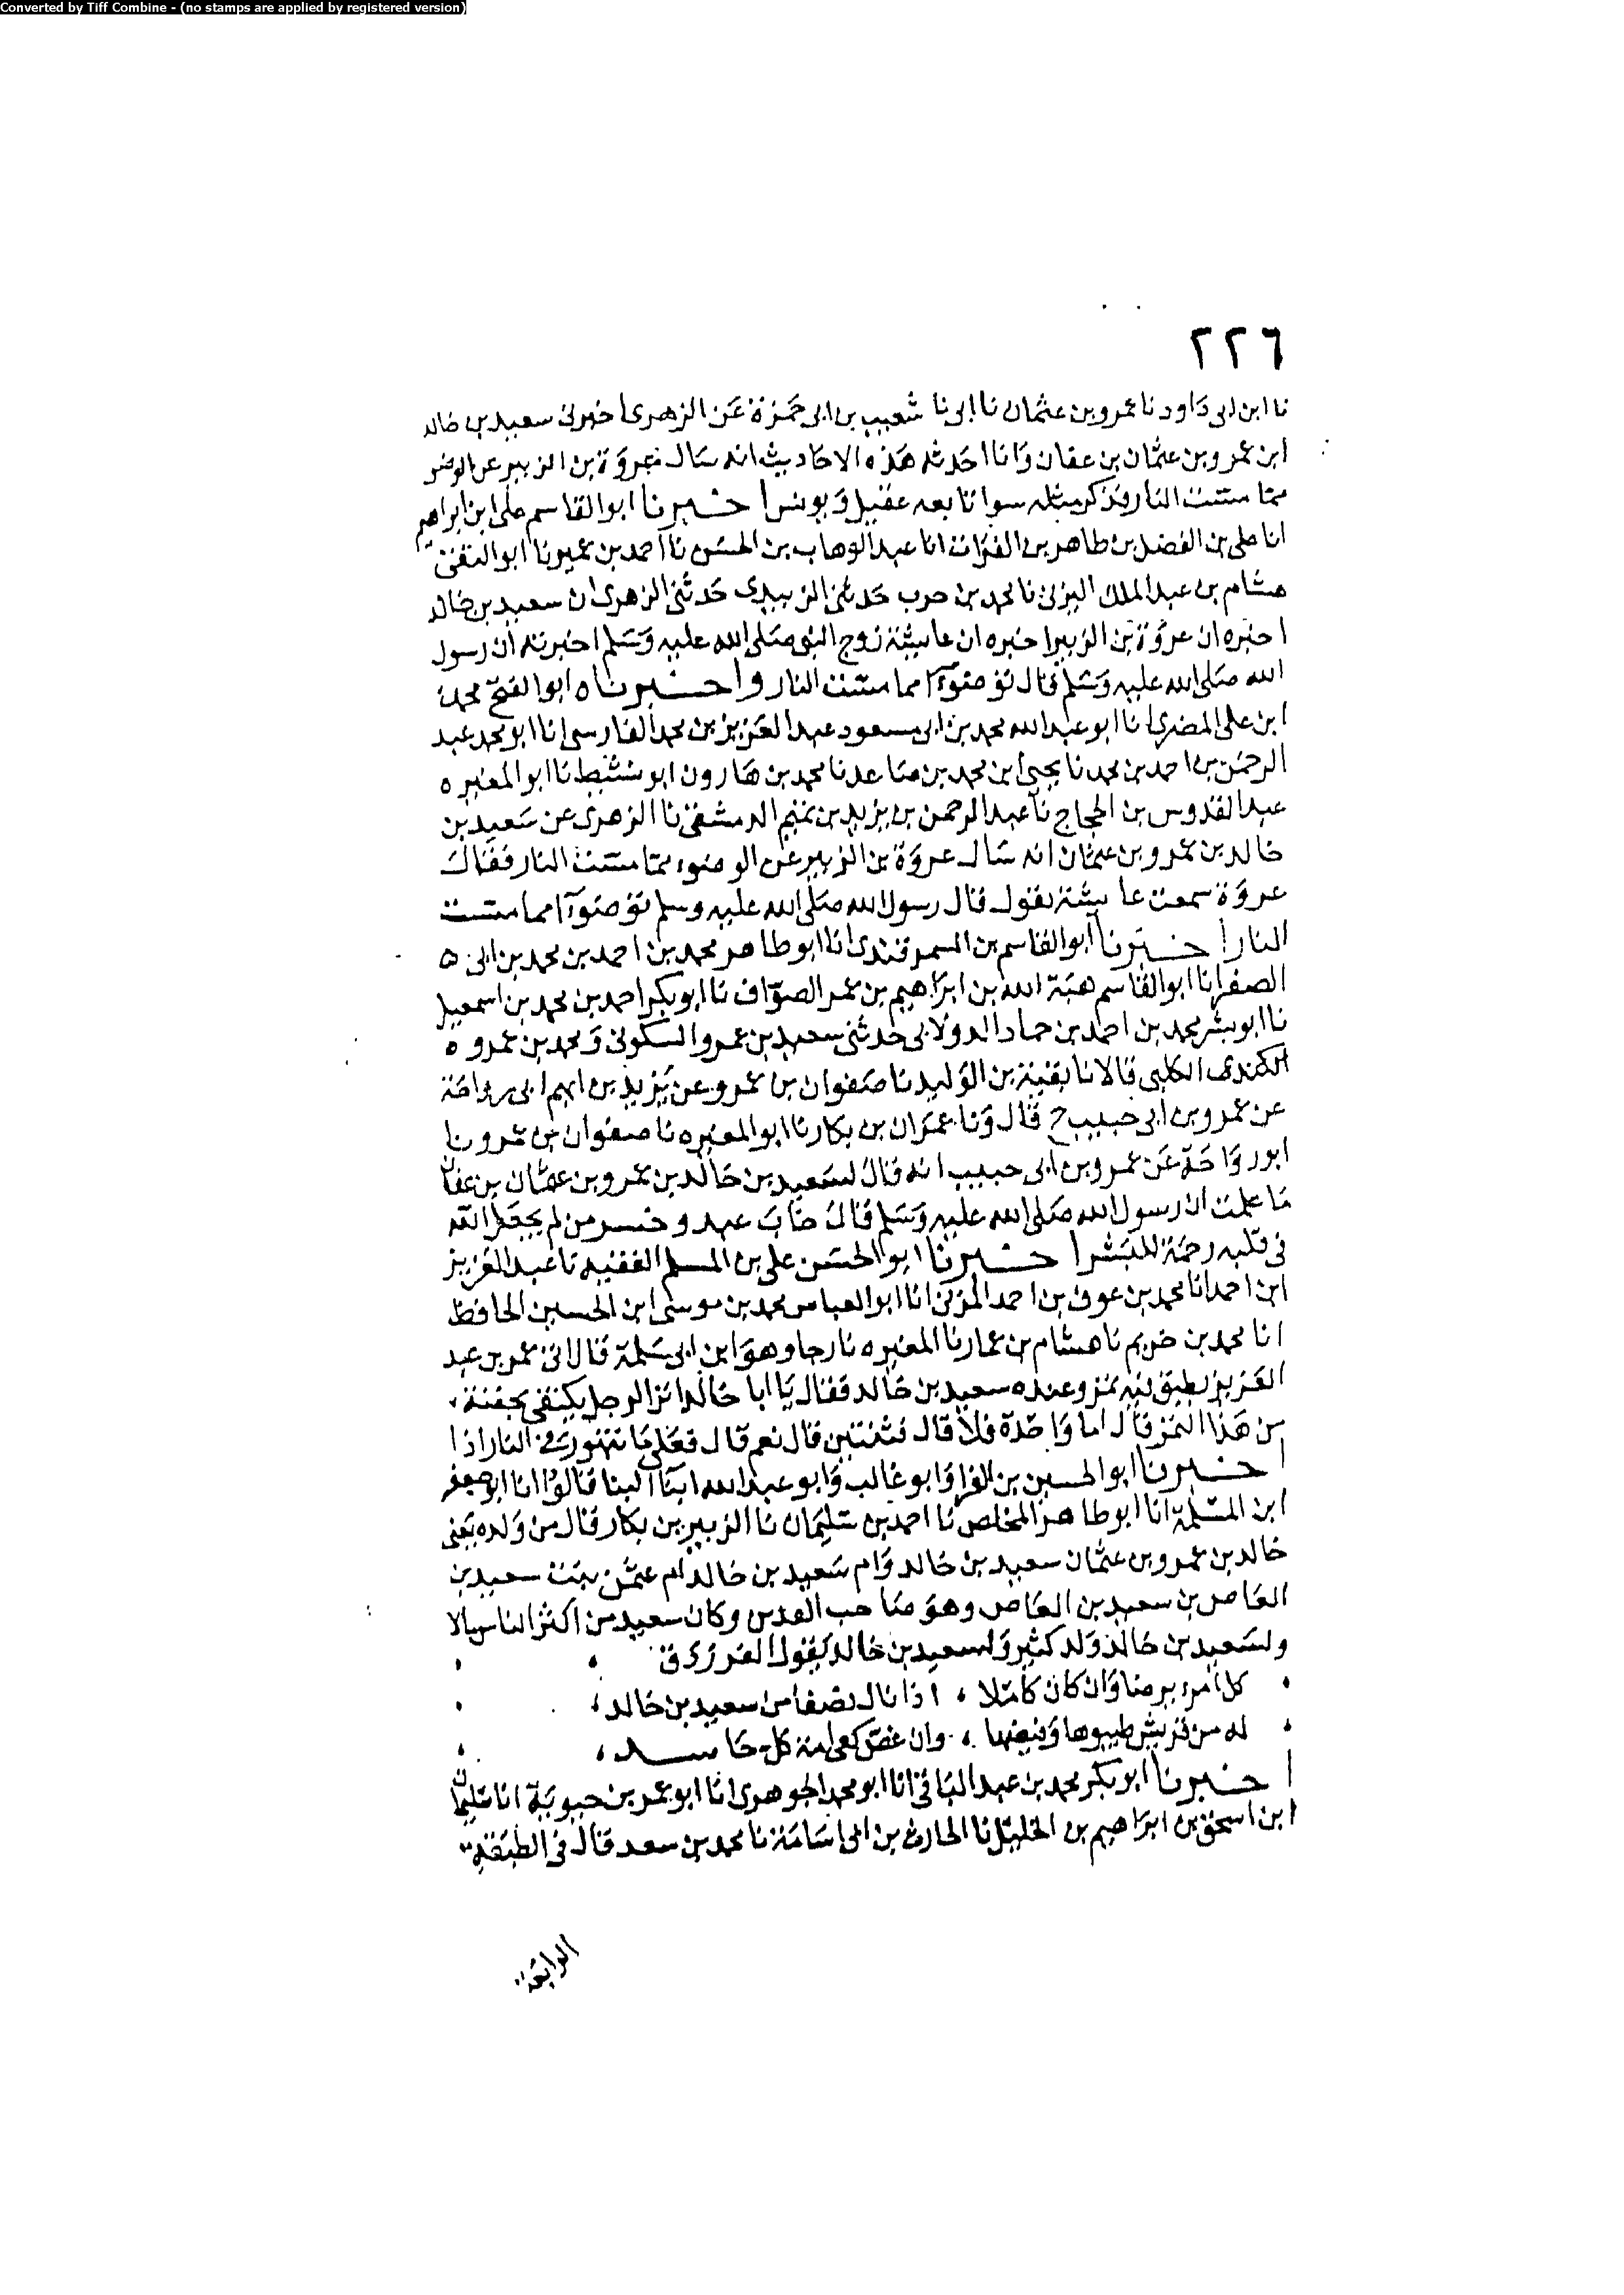 Converted by Tiff Combine - (no stamps are applied by registered version)
٢٢٦
نا ابن ابى داود نا عمرو بن عثمان نا ابى نا شعيب بن ابى حمزة عن الزهرى اخبرنى سعيد بن خالد
ابن عمرو بن عثمان بن عفان وانا احدثه هذه الاحاديث انه سال عروة بن الزبير عن الوضو
مما مست النار فذكر مثله سوا تابعه عقيل ويونس اخبرنا ابو القاسم على ابن ابراهيم
انا على بن الفضل بن طاهر بن الفرات انا عبد الوهاب بن الحسن نا احمد بن عمير نا ابو التقى
هشام بن عبد الملك اليزنى نا محمد بن حرب حدثنى الزبيدى حدثنى الزهرى ان سعيد بن خالد
اخبره ان عروة بن الزبير اخبره ان عايشة زوج النبى صلى الله عليه وسلم اخبرته ان رسول
الله صلى الله عليه وسلم قال توضوآ مما مست النار واخبرناه ابو الفتح محمد
ابن على المضرى انا ابو عبد الله محمد بن ابى مسعود عبد العزيز بن محمد الفارسى انا ابو محمد عبد
الرحمن بن احمد بن محمد نا يحيى ابن محمد بن صاعد نا محمد بن هارون ابو نشيط نا ابو المغيره
عبد القدوس بن الحجاج نا عبد الرحمن بن يزيد بن تميم الدمشقى نا الزهرى عن سعيد بن
خالد بن عمرو بن عثمان انه سال عروة بن الزبير عن الوضوء مما مست النار فقال
عروة سمعت عايشة تقول قال رسول الله صلى الله عليه وسلم توضوآ مما مست
النار اخبرنا ابو القاسم بن السمرقندى انا ابو طاهر محمد بن احمد بن محمد بن ابى
الصقر انا ابو القاسم هبة الله بن ابراهيم بن عمر الصواف نا ابو بكر احمد بن محمد بن اسمعيل
نا ابو بشر محمد بن احمد بن حماد الدولابى حدثنى سعيد بن عمرو السكونى ومحمد بن عمرو
الكندى الكلبى قالا نا بقية بن الوليد نا صفوان بن عمرو عن يزيد بن ايهم ابى رواحة
عن عمرو بن ابى حبيب ح قال ونا عمران بن بكار نا ابو المغيره نا صفوان بن عمرو نا
ابو رواحة عن عمرو بن ابى حبيب انه قال لسعيد بن خالد بن عمرو بن عثمان بن عفان
ما علمت ان رسول الله صلى الله عليه وسلم قال خاب عبد وخسر من لم يجعل الله
فى قلبه رحمة للبشر اخبرنا ابو الحسن على بن المسلم الفقيه نا عبد العزيز
ابن احمد انا محمد بن عوف بن احمد المزنى انا ابو العباس محمد بن موسى ابن الحسين الحافظ
انا محمد بن خريم نا هشام بن عمار نا المغيره نا رجا وهو ابن ابى سلمة قال اتى عمر بن عبد
العزيز بطبق فيه تمر وعنده سعيد بن خالد فقال يا ابا خالد اترى الرجل يكتفى بحفنة
من هذا التمر قال اما واحدة فلا قال فثنتين قال نعم قال فعلى ما نتهور فى النار اذا
اخبرنا ابو الحسين بن الفرا وابو غالب وابو عبد الله ابنا البنا قالوا انا ابو جعفر
ابن المسلمة انا ابو طاهر المخلص نا احمد بن سليمان نا الزبير بن بكار قال من ولده يعنى
خالد بن عمرو بن عثمان سعيد بن خالد وام سعيد بن خالد ام عثمن بنت سعيد بن
العاص بن سعيد بن العاص وهو صاحب الفدين وكان سعيد من اكثر الناس مالا
ولسعيد بن خالد ولد كثير ولسعيد بن خالد يقول الفرزدق
كل امرء يرضا وان كان كاملا ، اذا نال نصفا من سعيد بن خالد ،
له من قريش طيبوها وفيضها ، وان عض كفى امه كل حاسد ،
اخبرنا ابو بكر محمد بن عبد الباقى انا ابو محمد الجوهرى انا ابو عمر بن حيوية انا سليمان
ابن اسحق بن ابراهيم بن الخليل نا الحارث بن ابى اسامة نا محمد بن سعد قال فى الطبقة
الرابعة